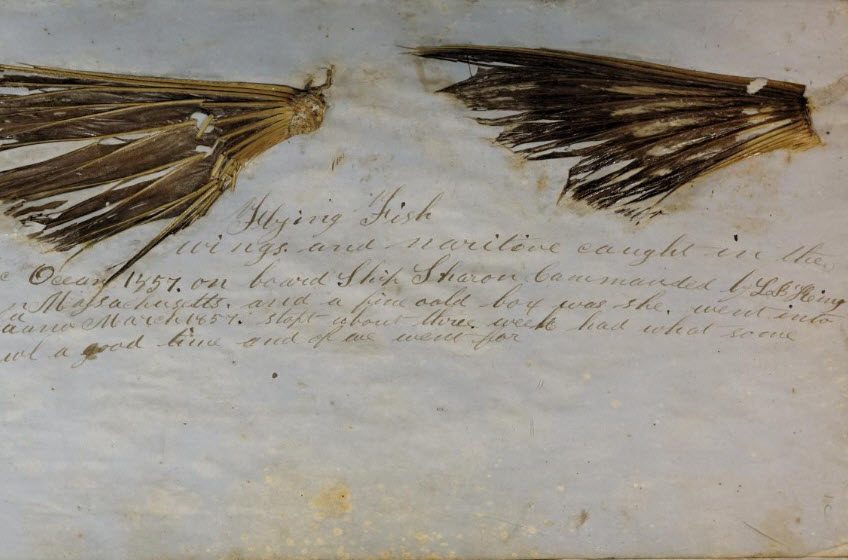 Flying Fish
wings and naritive caught in the
Ocean 1857. on board Ship Sharon Commanded by
Massachusetts. and a fine oald boy was she. went into
March 1857. stopt about three week had what some
a good time and of we went for